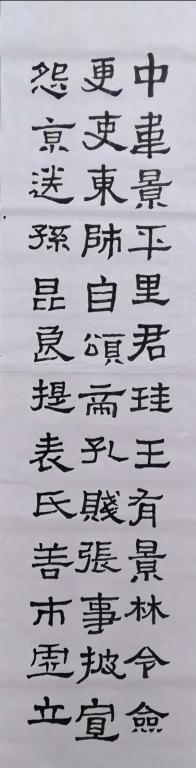 中車景平里君珪王有景林令僉
更吏東師自頌孔賤張事披宣
怨京送孫昆良提表氏善市立